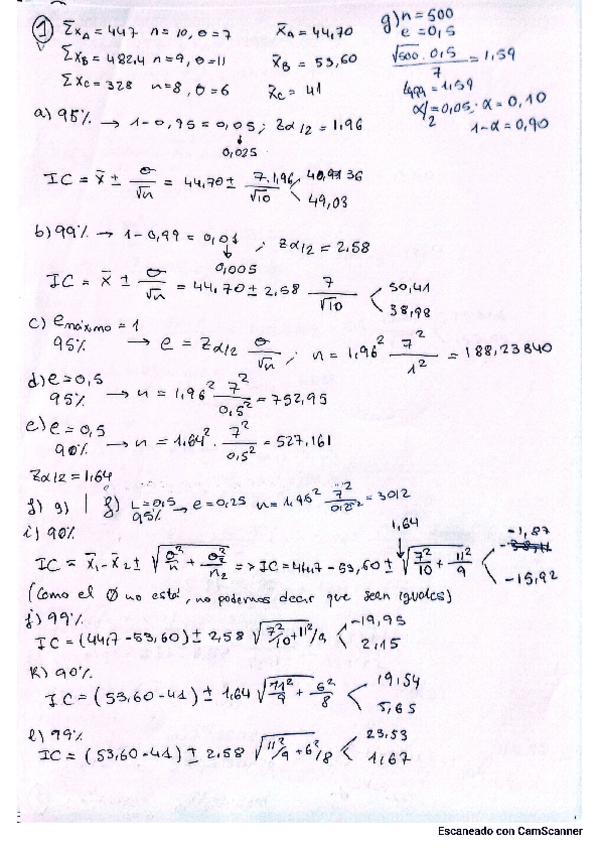 ① ΣXA = 447 n = 10, σ = 7 X̄A = 44,70
ΣXB = 482,4 n = 9, σ = 11 X̄B = 53,60
ΣXC = 328 n = 8, σ = 6 X̄C = 41
g) n = 500
e = 0,5
√500 · 0,5 / 7 = 1,59
= 1,59
α/2 = 0,05 · α = 0,10
1-α = 0,90
a) 95% → 1 - 0,95 = 0,05 ; Zα/2 = 1,96
0,025
IC = X̄ ± σ/√n = 44,70 ± 7·1,96/√10 < 36
49,03
b) 99% → 1 - 0,99 = 0,01 ; Zα/2 = 2,58
0,005
IC = X̄ ± σ/√n = 44,70 ± 2,58 7/√10 < 50,41
38,98
c) e máximo = 1
95% → e = Zα/2 σ/√n ; n = 1,96² 7²/1² = 188,23840
d) e = 0,5
95% → n = 1,96² 7²/0,5² = 752,95
e) e = 0,5
90% → n = 1,64² · 7²/0,5² = 527,161
Zα/2 = 1,64
f) g) | f) L = 0,5 95% → e = 0,25 n = 1,96² 7²/0,25² = 3012
i) 90%
IC = X̄1 - X̄2 ± √σ²/n + σ²/n2 => IC = 44,7 - 53,60 ± 1,64 √7²/10 + 11²/9 < -1,87
-15,92
(Como el Ø no está, no podemos decir que sean iguales)
j) 99%
IC = (44,7 - 53,60) ± 2,58 √7²/10 + 11²/9 < -19,95
2,15
k) 90%
IC = (53,60 - 41) ± 1,64 √11²/9 + 6²/8 < 19,54
5,65
l) 99%
IC = (53,60 - 41) ± 2,58 √11²/9 + 6²/8 < 23,53
1,67
Escaneado con CamScanner